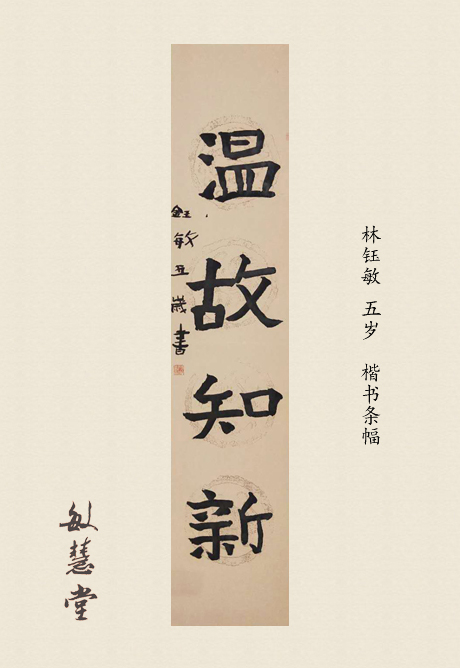 温故知新
鈺敏五歲書
林钰敏 五岁 楷书条幅
敏慧堂